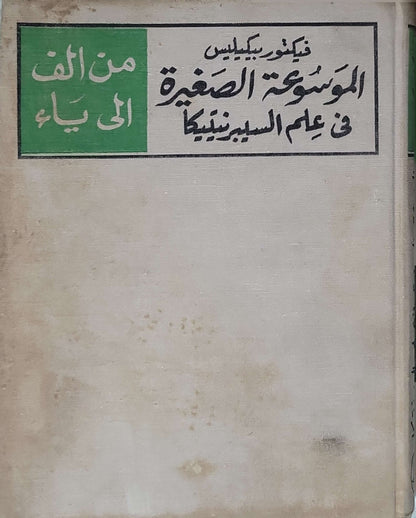 من الف
الى ياء
فيكتور بيكيليس
الموسوعة الصغيرة
فى علم السيبرنيتيكا